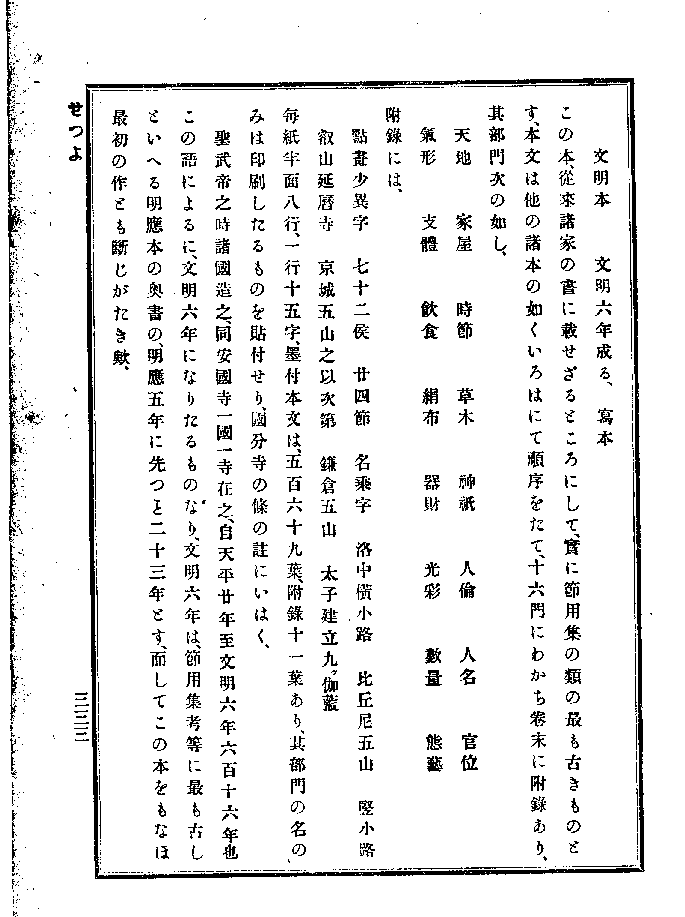 文明本　文明六年成る、　寫本
この本、從來諸家の書に載せざるところにして、實に節用集の類の最も古きものと
す、本文は他の諸本の如くいろはにて順序をたて、十六門にわかち卷末に附錄あり、
其部門次の如し、
天地　家屋　時節　草木　神祇　人倫　人名　官位
氣形　支體　飮食　絹布　器財　光彩　數量　態藝
附錄には、
點畫少異字　七十二侯　廿四節　名乘字　洛中橫小路　比丘尼五山　竪小路
叡山延曆寺　京城五山之以次第　鎌倉五山　太子建立九ヶ伽藍
每紙半面八行、一行十五字、墨付本文は、五百六十九葉、附錄十一葉あり、其部門の名の
みは印刷したるものを貼付せり、國分寺の條の註にいはく、
聖武帝之時諸國造之、同安國寺一國一寺在之、自天平廿年至文明六年六百十六年也
この語によるに、文明六年になりたるものなり、文明六年は、節用集考等に最も古し
といへる明應本の奧書の、明應五年に先つこと二十三年とす、而してこの本をもなほ
最初の作とも斷じがたき歟、
せつよ
三二三